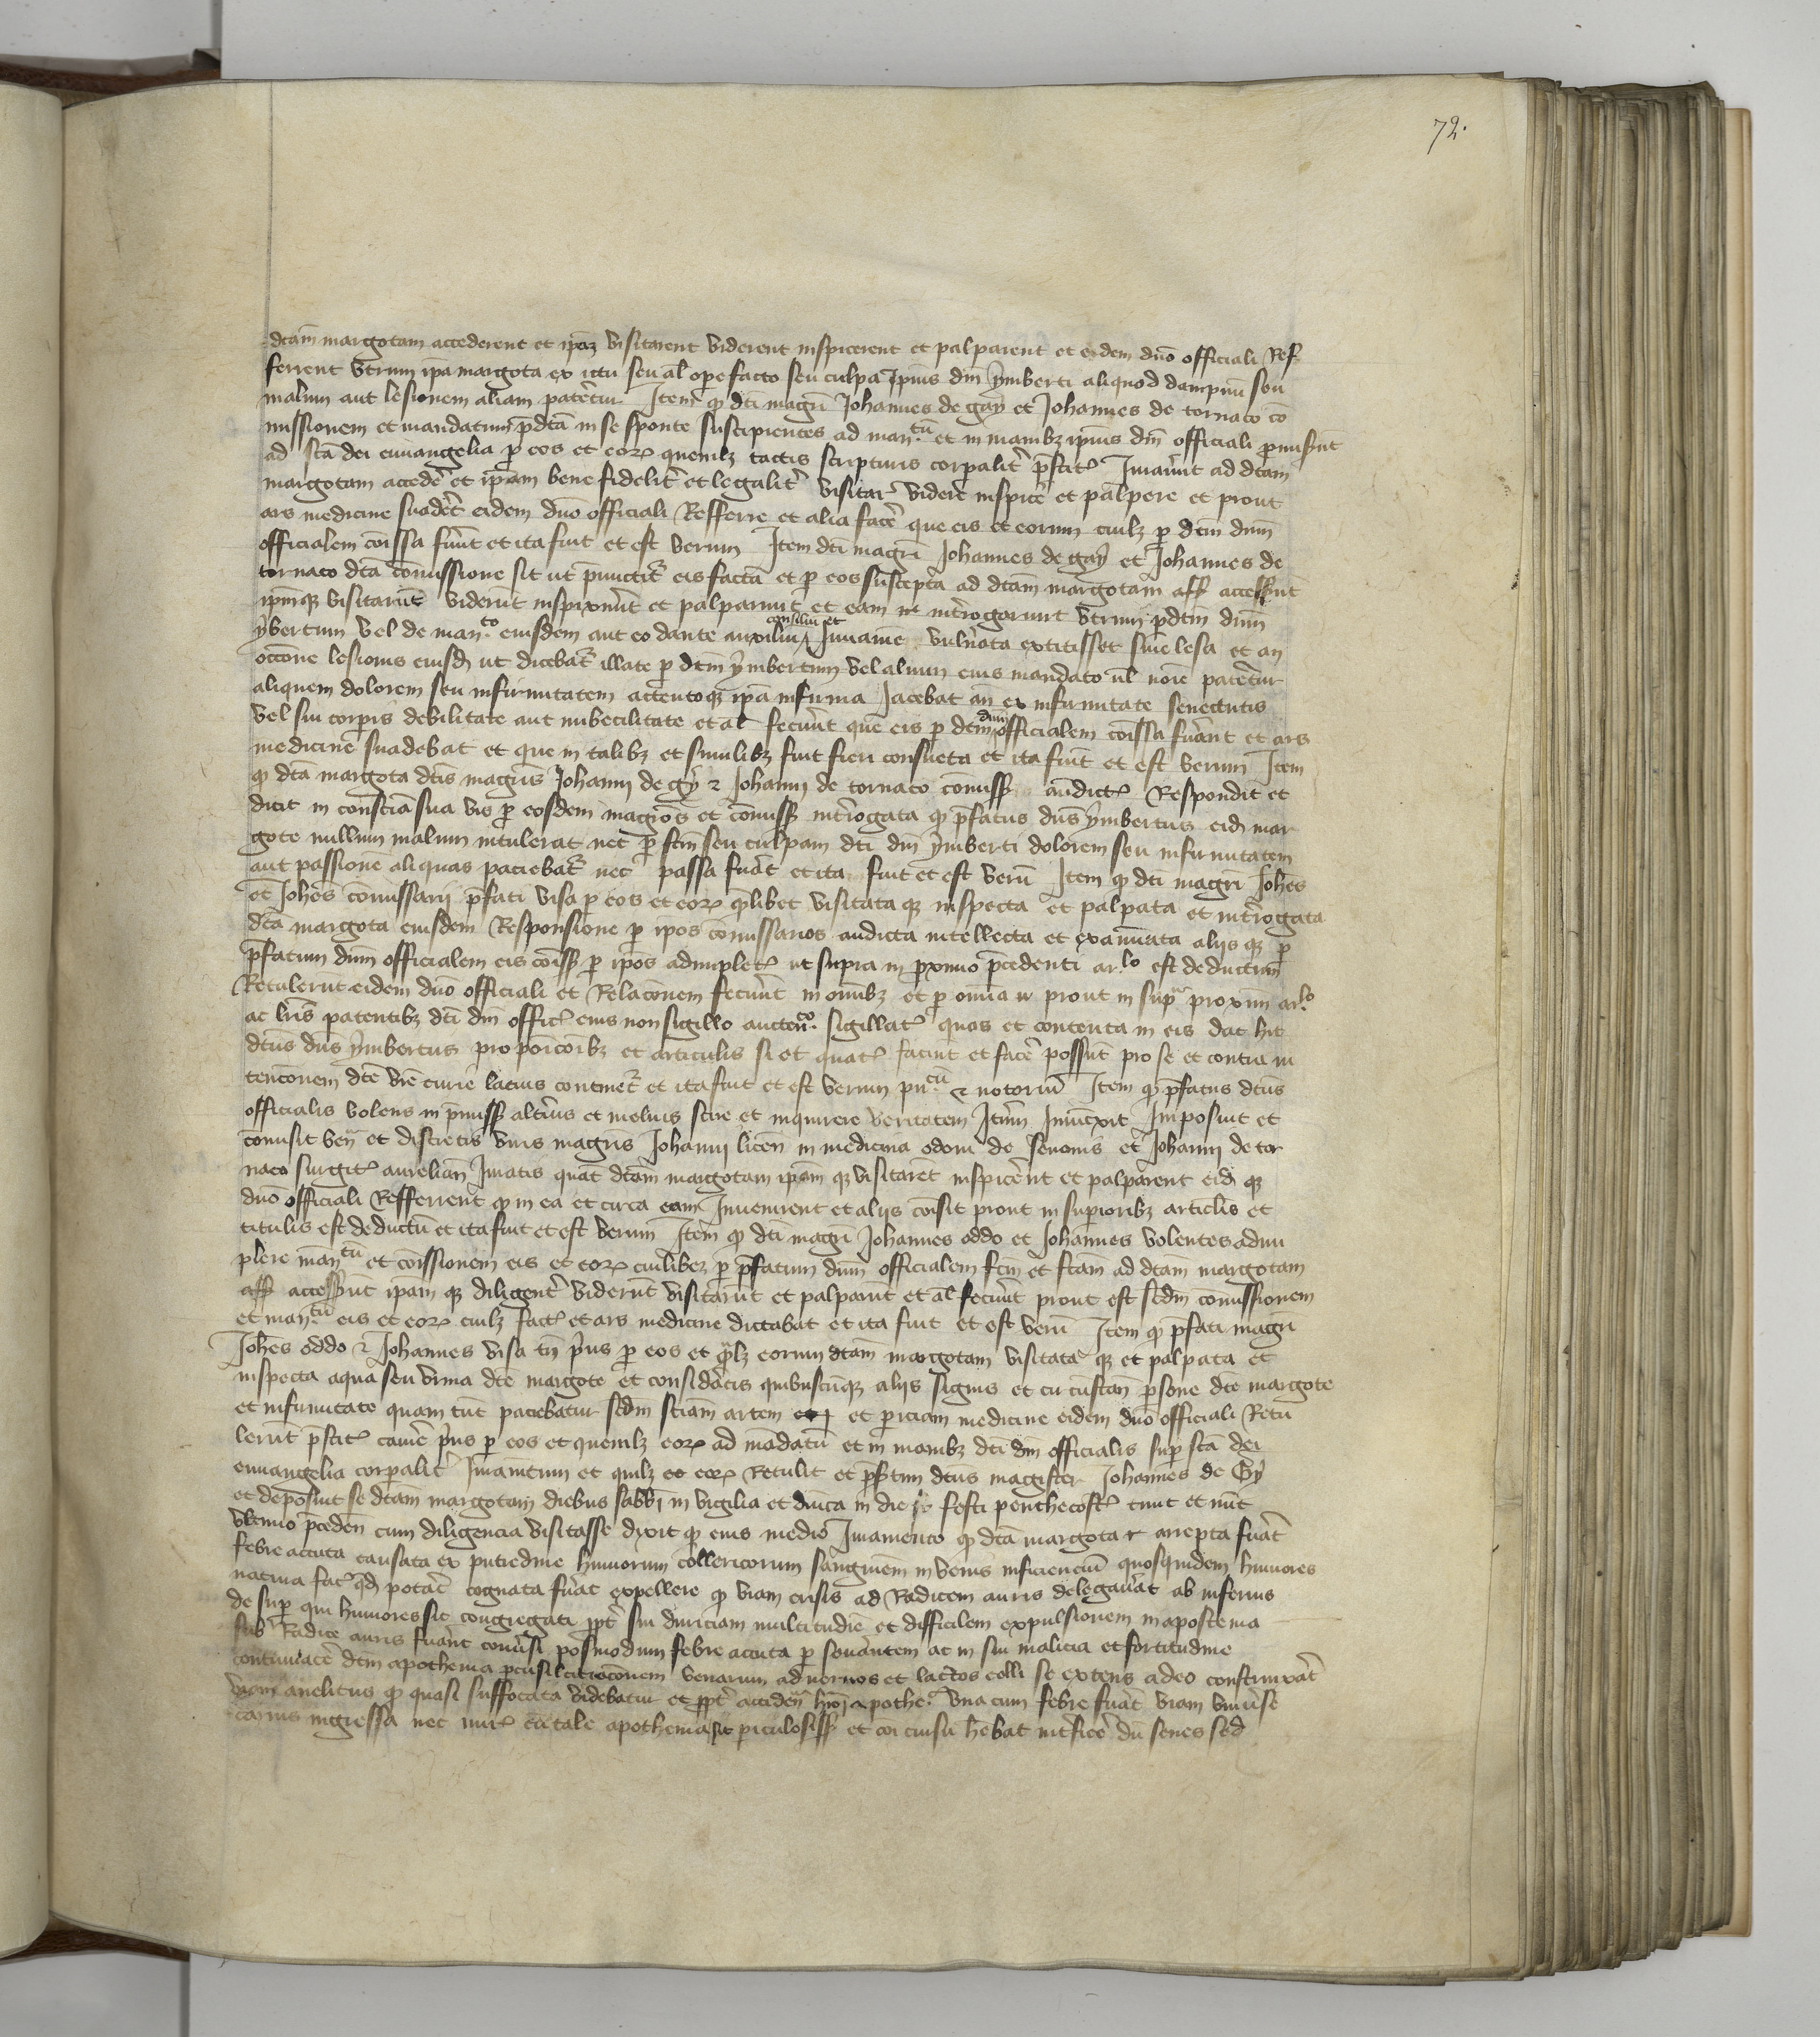 72.
dcam margotam accederent et ip̄az visitarent viderent inspicerent et palparent et eidem dn̄o officiali Ref
ferrent vtrum ip̄a margota ex ictu seu al̄ ope facto seu culpa ip̄ius dn̄i ymberti aliquod dampnū seu
malum aut lesionem aliam pateretur Item q̄ dc̄i magr̄i Johannes de gay et Johannes de tornaco cō
missionem et mandatum p̄dc̄ā in se sponte suscipientes ad man.tū et in manibz ip̄ius dn̄i officiali
ad sc̄a dei euuangelia p eos et eorꝝ quemlz tactis scripturis corpalit̄
margotam accedē et ip̄am bene fidelit̄ et legalit̄ visitar̄ videre inspicē et palpere et prout
ars medicine suadēt eidem dn̄o officiali Refferre et alia facē que eis et eorum cuilz p dc̄m dn̄m
officialem cōissa fuūt et ita fuit et est verum Item dc̄i magr̄i Johannes de gay et Johannes de
tornaco dc̄a cōmissione sic ut eis facta et p eos suscepta ad dc̄am margotam
ip̄mqꝫ visitarūt viderūt inspixerūt et palparunt et eam int̄rogarunt vtrum p̄dc̄m dn̄m
ybertum vel de man.to eiusdem aut eo dante auxiliū consiliū et Iuuamē vuln̄ata extitisset siue lesa et an
occōne lesionis eiusd̄ ut dicebat̄ illate p dc̄m ymbertum vel alium eius mandato ul̄ noīe patēt̄ur
aliquem dolorem seu infirmitatem actentoqꝫ ip̄a infirma Jacebat an ex infirmitate senectutis
vel sui corpis debilitate aut imbecilitate et al̄ fecūnt que eis p dc̄m dn̄m officialem cōissa fūant et ars
medicine suadebat et que in talibz et similibz fuit fieri consueta et ita fuit et est verum Item
q̄ dc̄a margota dc̄is magr̄is Johanni de gy ⁊ Johanni de tornaco cōmiss Respondit et
dicit in conscīa sua vis p eosdem magr̄os et cōmiss int̄rogata q̄ p̄fatus dn̄s ymbertus eid̄ mar
gote nullum malum intulerat nec p fc̄m seu culpam dc̄i dn̄i ymberti dolorem seu infirmitatem
aut passionē aliquas paciebat̄ nec passa fuāt et ita fuit et est verū Item q̄ dc̄i magr̄i Joh̄es
et Joh̄es cōmissarij p̄fati visa p eos et eorꝝ q̄libet visitata qꝫ inspecta et palpata et int̄rogata
dc̄a margota eiusdem Responsione p ip̄os cōmissarios audicta intellecta et examīata aliis qꝫ p
p̄fatum dn̄m officialem eis cōiss p ip̄os adimplet̄ ut supra in pximo p̄cedenti ar.lo est deductum
Retulerūt eidem dn̄o officiali et Relacōnem fecūnt in omībz et p omīa prout in sup̄ proximi ar.lo
ac lr̄is patentibz dc̄i dn̄i offic̄ eius non sigillo aucten.co sigillat̄ quas et contenta in eis dat hic
dc̄us dn̄s ymbertus pro posicōibz et articulis si et quat̄ faciūt et facē possūt pro se et contra in
tencōnem dc̄e vr̄e curie lacius continet̄ et ita fuit et est verum ⁊ notoriū Item q̄ p̄fatus dc̄us
officialis volens in p̄miss alt̄ius et melius scire et inquirere veritatem Iterū Iniūxit Imposuit et
cōmisit ven̄ et discretis viris magr̄is Johanni licen̄ in medicina odoni de senonis et Johanni de tor
naco surgic̄ aurelian̄ Iuratis quat̄ dc̄am margotam ip̄am qꝫ visitarēt inspicērēt et palparent eid̄ qꝫ
dn̄o officiali Refferrent q̄ in ea et circa eam Inuenirent et aliis cōisit prout in superioribz articl̄is et
titulis est deductū et ita fuit et est verum Item q̄ dc̄i magr̄i Johannes oddo et Johannes volentes adim
plere man.tū et cōissionem eis et eorꝝ cuilibez p p̄fatum dn̄m officialem fc̄m et fc̄am ad dc̄am margotam
accessūt ip̄am qꝫ diligent̄ viderūt visitarūt et palparūt et al̄ fecūnt prout est sc̄dm cōmissionem
et man.tū eis et eorꝝ cuilz fact̄ et ars medicine dictabat et ita fuit et est verū Item q̄ p̄fati magr̄i
Joh̄es oddo ⁊ Johannes visa p̄us p eos et q̄lz eorum dc̄am margotam visitata qꝫ et palpata et
inspecta aqua seu vrina dc̄e margote et considāctis quibuscūqꝫ aliis signis et circūstan̄ psone dc̄e margote
et infirmitate quam tūc paciebatur sc̄dm sciam artem et periciam medicine eidem dn̄o officiali Retu
lerūt p̄us p eos et quemlz eorꝝ ad mādatū et in manibz dc̄i dn̄i officialis sup sc̄a dei
euuangelia corpalit̄ Iuramētum et quilz eorꝝ Retulit et dc̄us magister Johannes de Gy
et deposuit se dc̄am margotam diebus sabb̄i in vigilia et dn̄ica in die festi penthecost̄ tunc et nūc
vltimo p̄ceden̄ cum diligencia visitasse dixit q̄ eius medio Iuramento q̄ dc̄a margota arrepta fuāt
febre accuta causata ex putredine humorum collericorum sanguinē in venis inficienciū quosquidem humores
natura cognata fuāt expellere q̄ viam crisis ad Radicem auris delegauāt ab inferius
de sup qui humores sic congregati pp̄t sui duriciam multitudīe et difficilem expulsionem in apostema
sub Radice auris fuānt conūsi posmodum febre accuta p seuāntem ac in sui malicia et fortitudine
dc̄m apothema venarum ad neruos et lactos colli se extens adeo constrinxāt
viam anelitus q̄ quasi suffocata videbatur et pp̄t acciden̄ apothe. vna cum febre fuāt viam vniuse
carnis ingressa nec mir̄ cū tale apothema sit piculosiss et cor h̄ebat int̄ficē dū senes sed